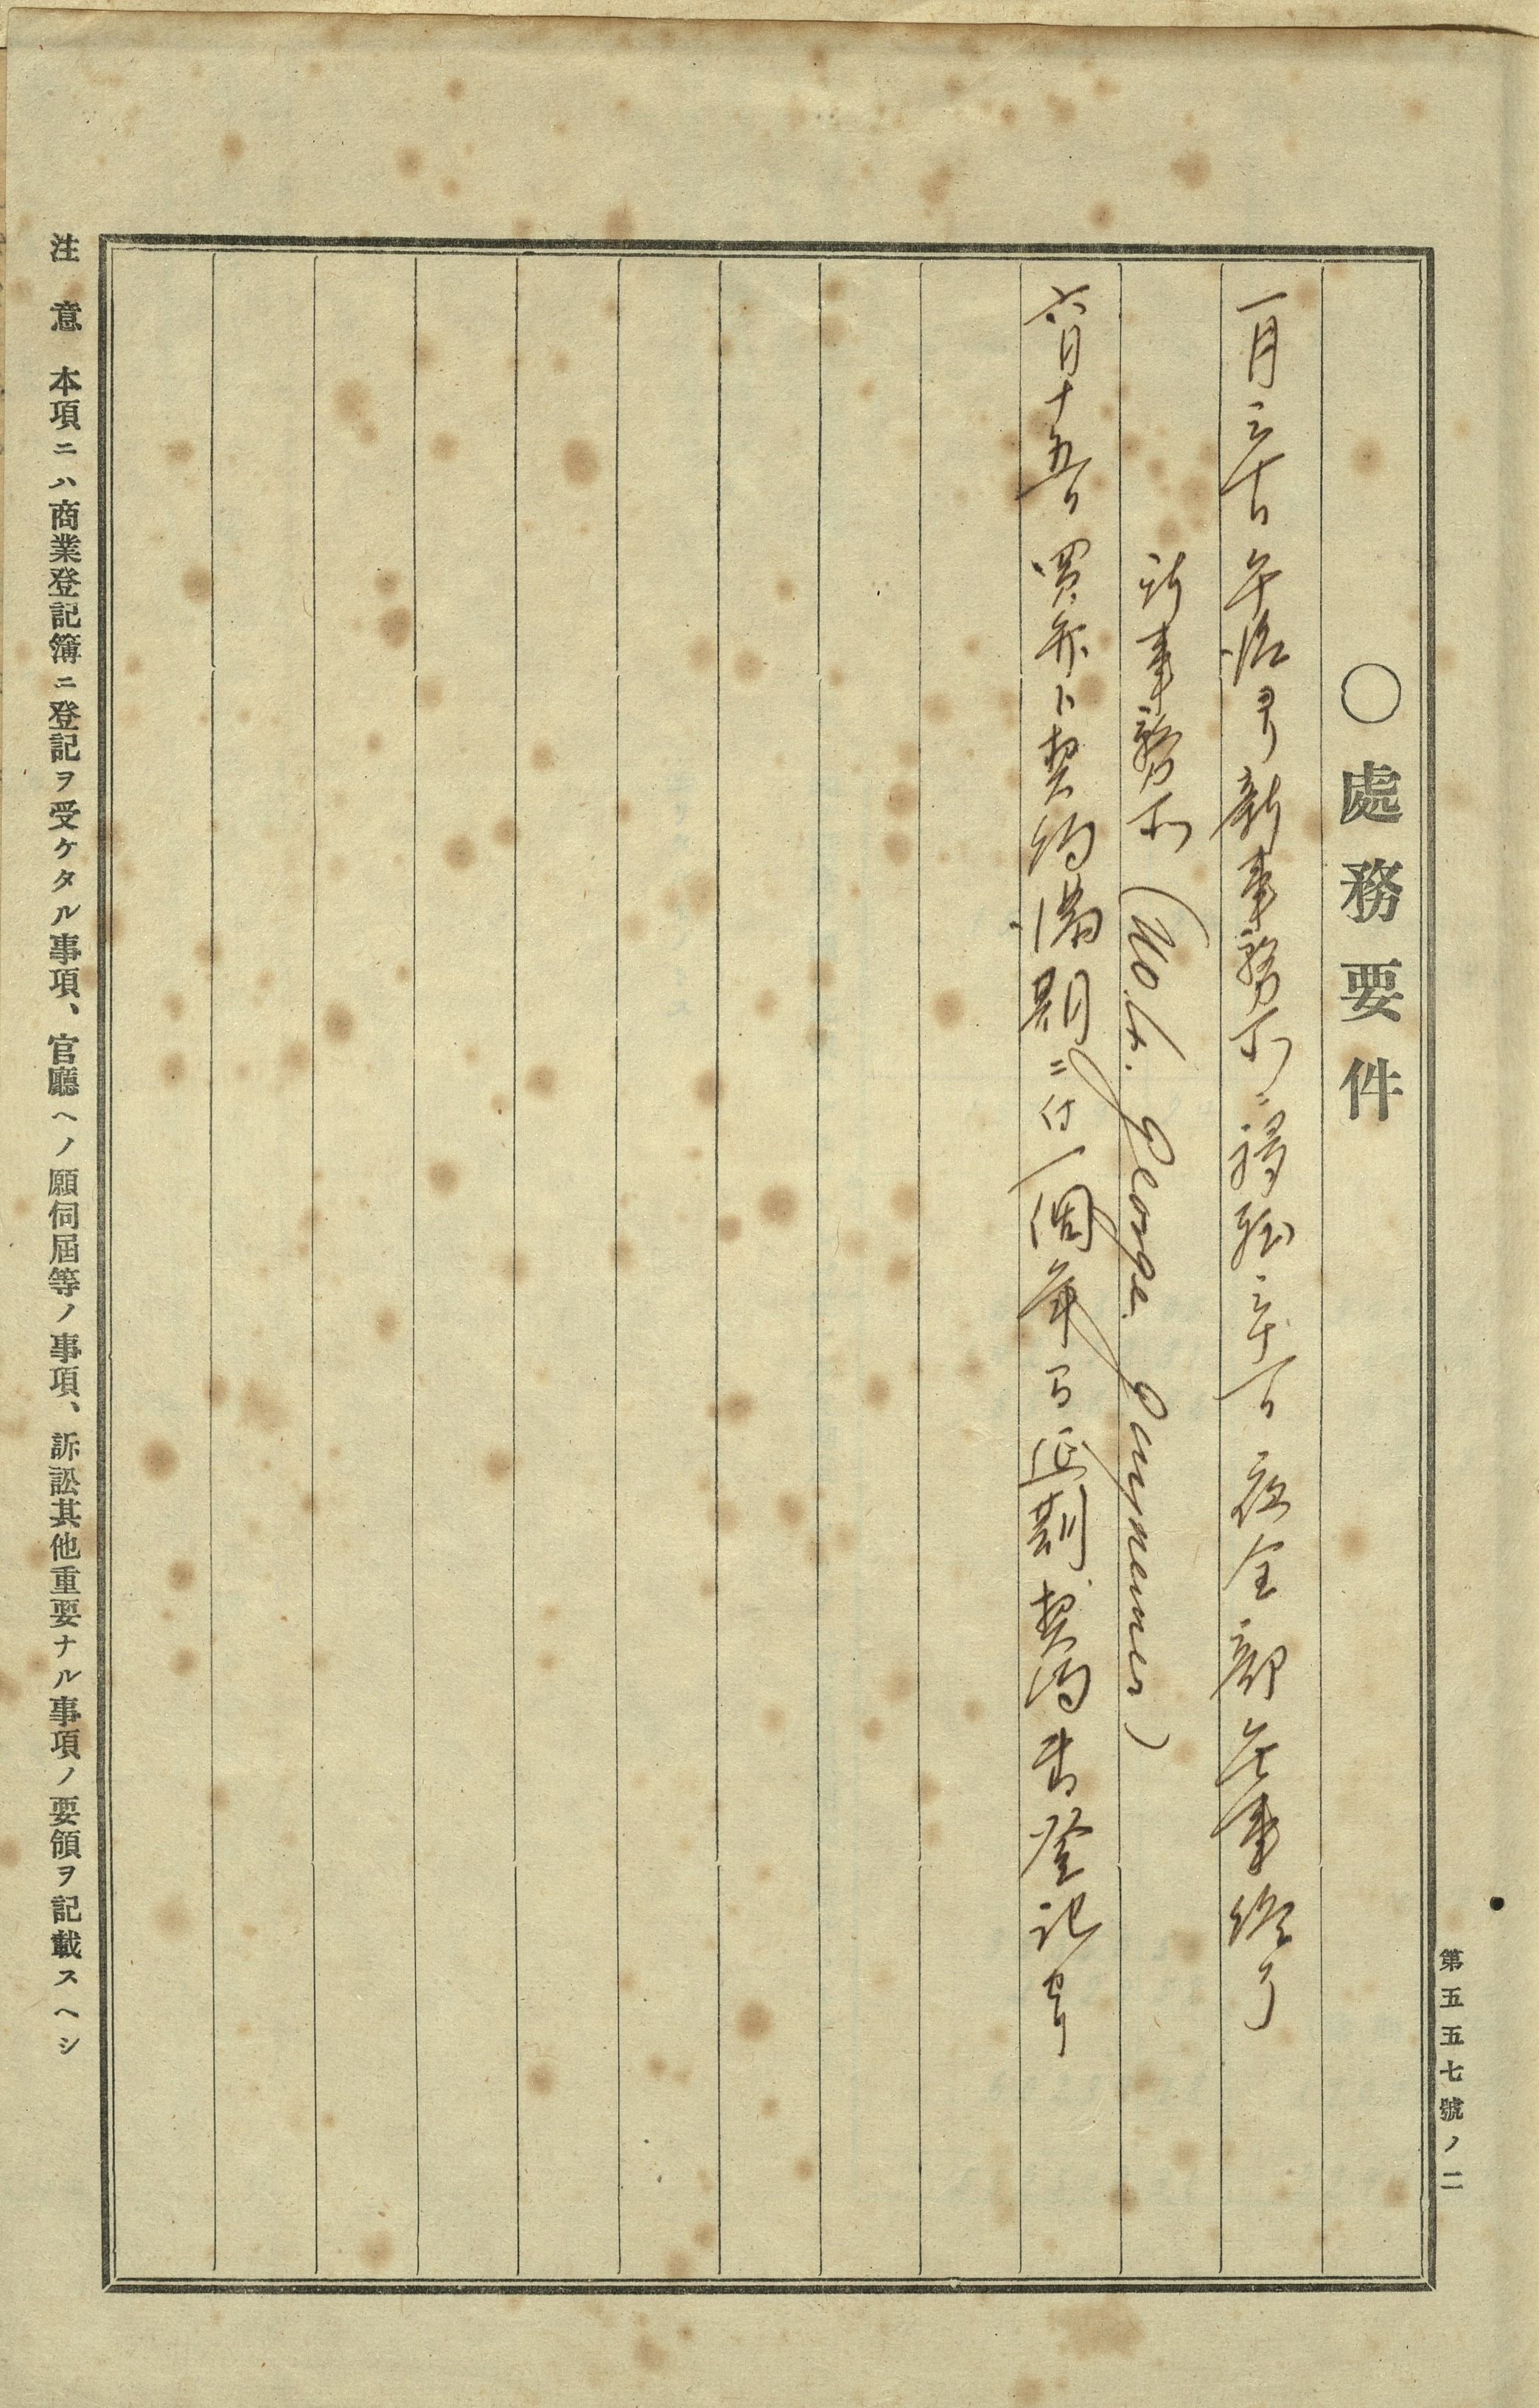 第五五七號ノ二
○處務要件
一月三十日 午後ヨリ新事務所ニ移転三十一日夜全部無事終了
新事務所 (No. 4. George Gunpenner)
六月十五日 買弁ト契約満期ニ付一個年間延期契約書登記セリ
注意 本項ニハ商業登記簿ニ登記ヲ受ケタル事項、官廳ヘノ願伺屆等ノ事項、訴訟其他重要ナル事項ノ要領ヲ記載スヘシ